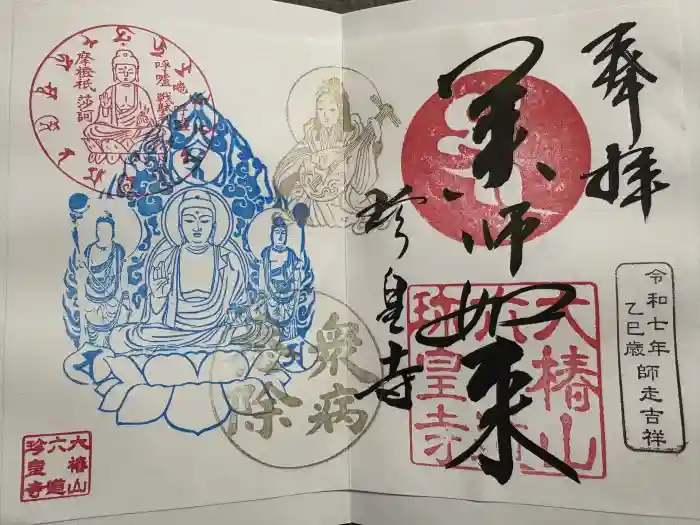 奉拝
薬師如来
珍皇寺
大椿山
六道
珍皇寺
令和七年
乙巳歳師走吉祥
衆病
悉除
大椿山
六道
珍皇寺
唵
呼嚧
戦馱
摩橙祇
莎訶